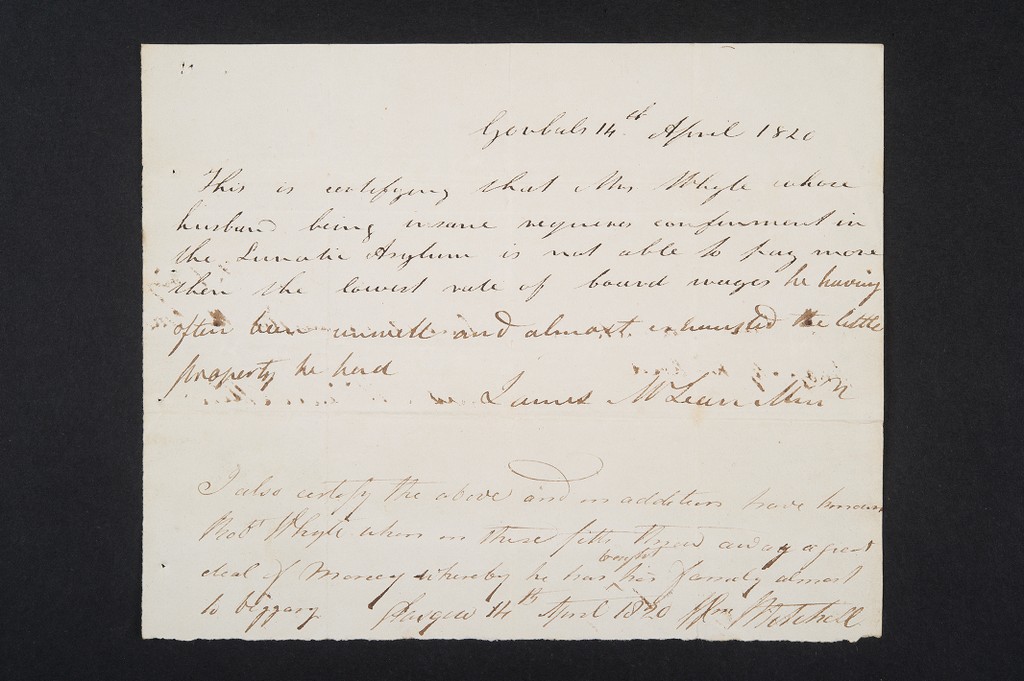 Gorbals 14th April 1820
This is certifying that Mrs Whyte whose
husband being insane requires confinment in
the Lunatic Asylum is not able to pay more
then the lowest rate of board wages he having
often been unwell and almost exhausted the little
property he had
James McLean Minr
I also certify the above and in addition have known
Robt Whyte when in these fits throw away a great
deal of Money whereby he has brought his family almost
to beggary Glasgow 14th April 1820 Wm Mitchell